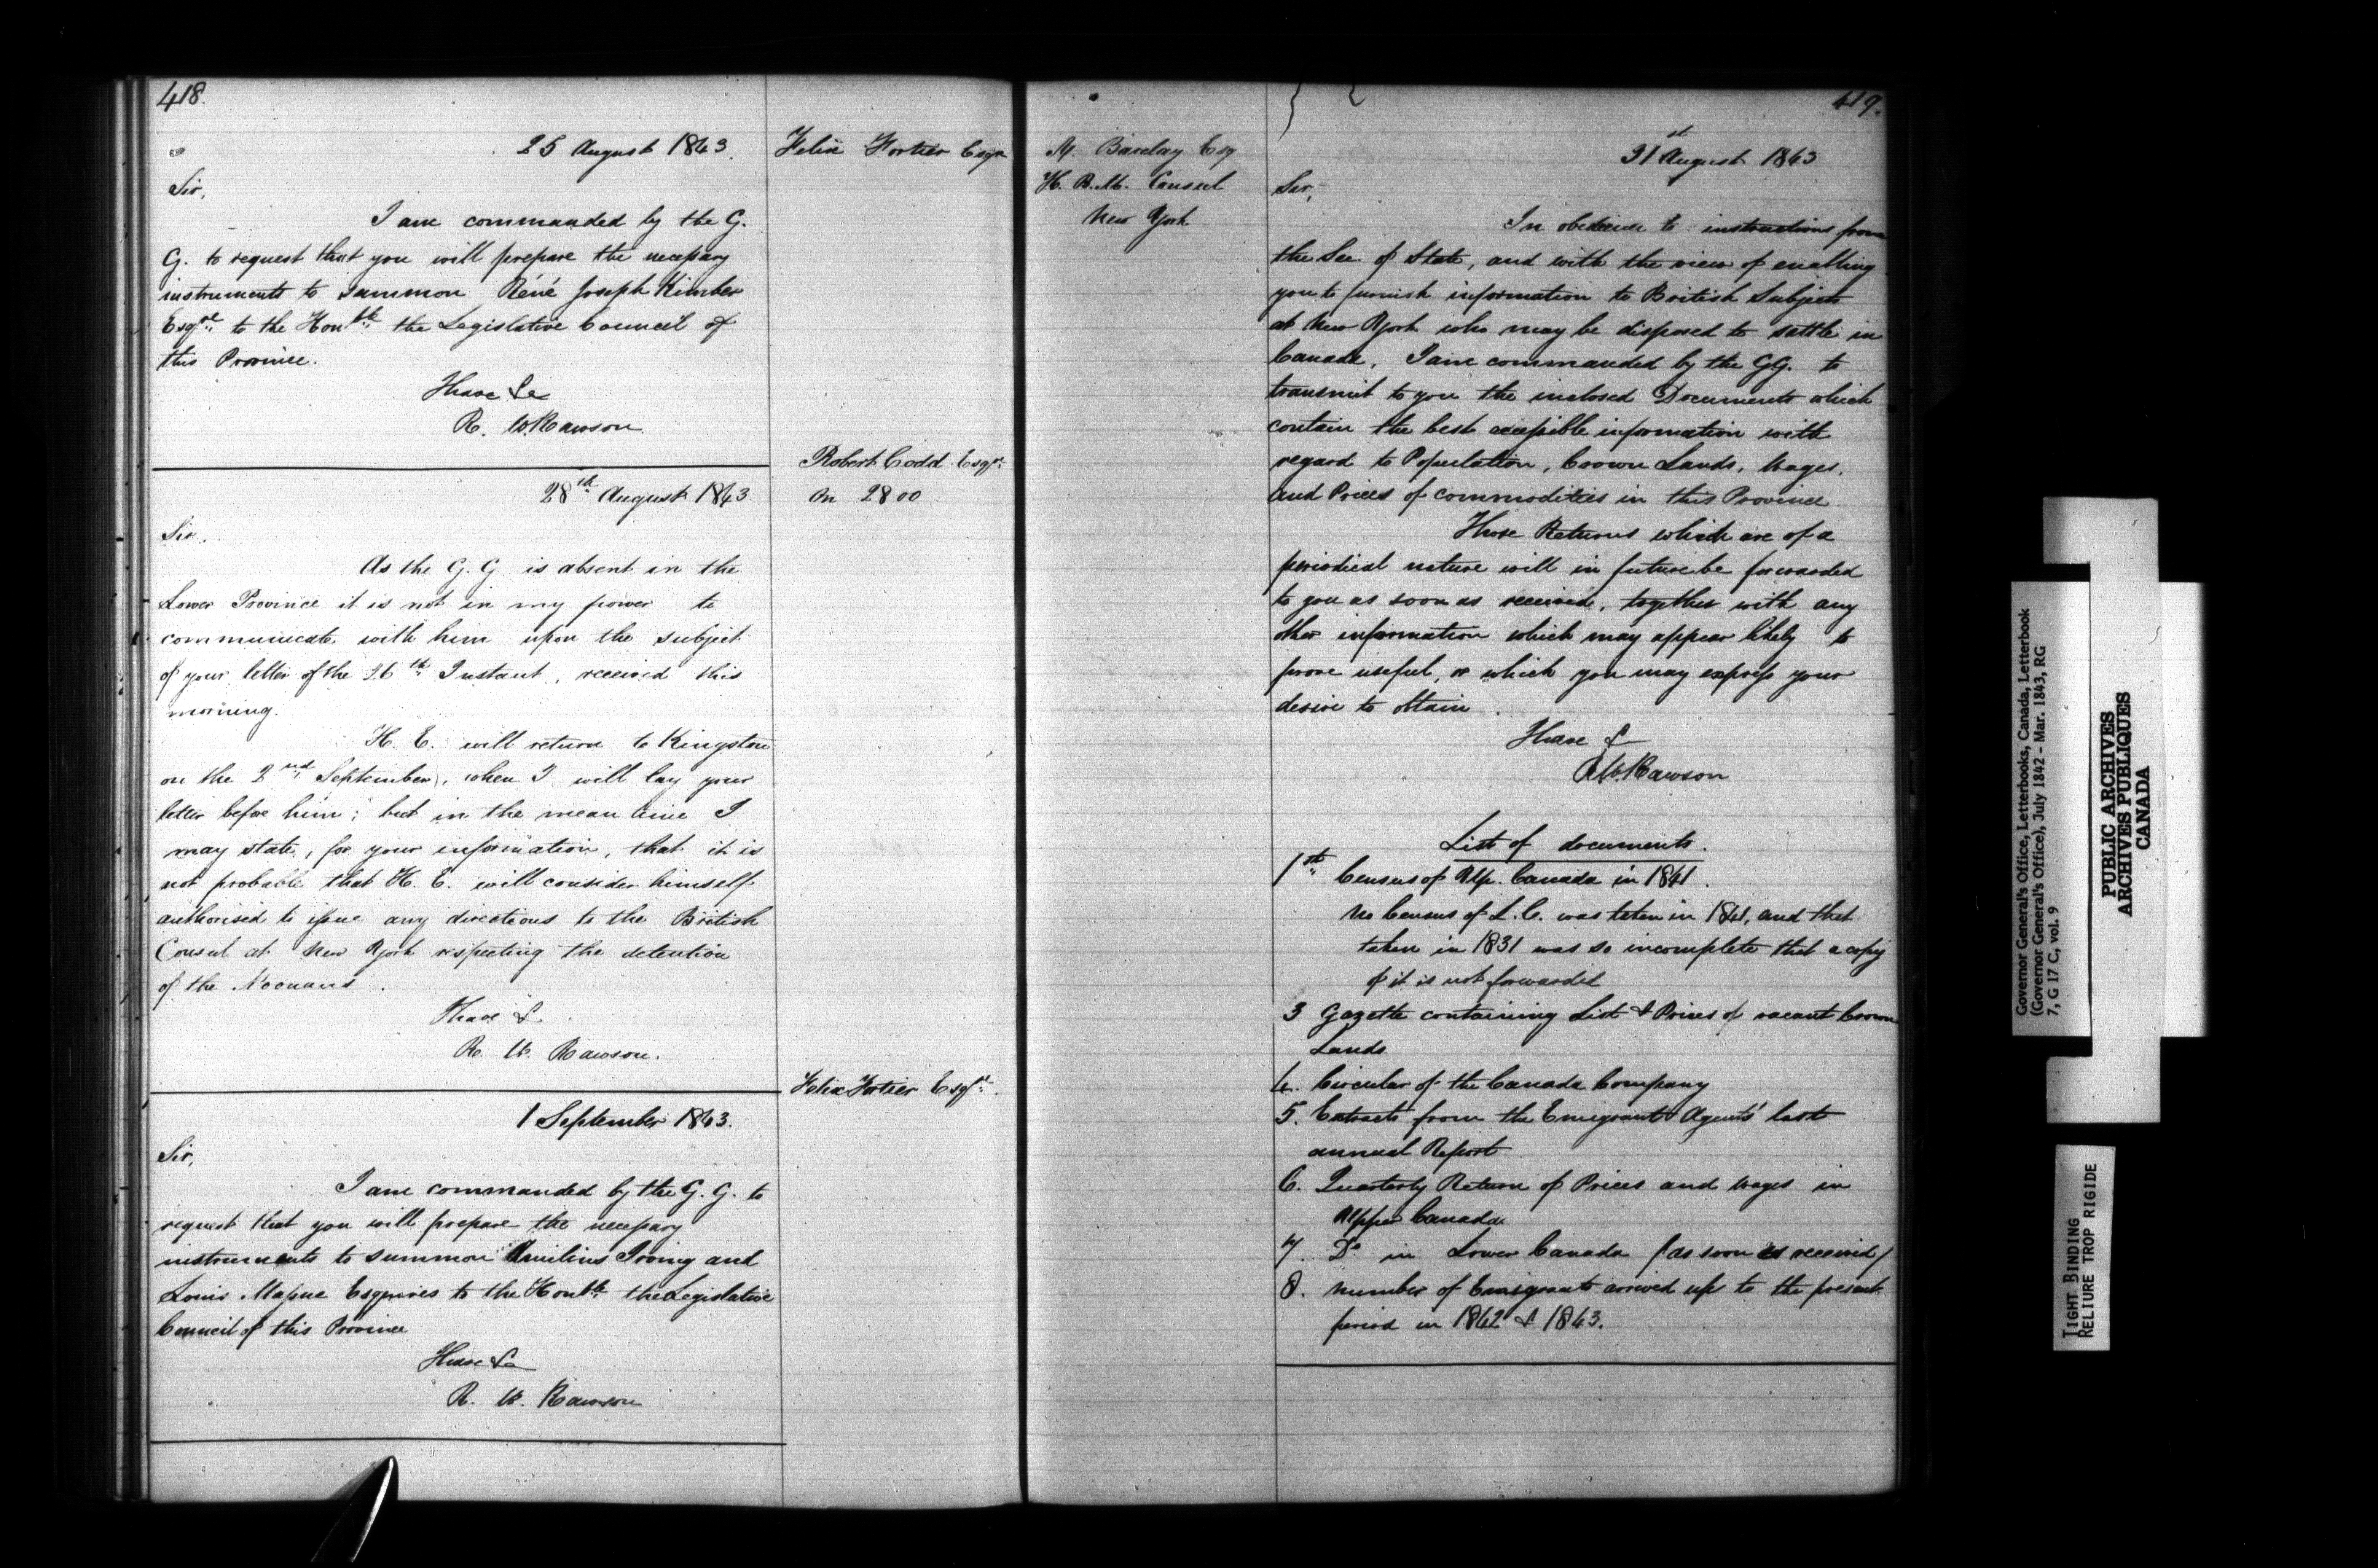 418.
25 August 1843.
Felix Fortier Esqr
Sir,
I am commanded by the G.
G. to request that you will prepare the necessary
instruments to summon Réné Joseph Kimber
Esqre to the Honble the Legislative Council of
this Province.
I have &c
R. W. Rawson
Robert Codd Esqr.
on 2800
28th August 1843
Sir.
As the G. G. is absent in the
Lower Province it is not in my power to
communicate with him upon the subject
of your letter of the 26th Instant, received this
morning.
H. E. will return to Kingston
on the 2nd September, when I will lay your
letter before him; but in the mean time I
may state, for your information, that it is
not probable that H. E. will consider himself
authorised to issue any directions to the British
Consul at New York respecting the detention
of the Noonans.
I have &
R. W. Rawson.
Felix Fortier Esqre.
1 September 1843.
Sir,
I am commanded by the G. G. to
request that you will prepare the necessary
instruments to summon Æmilius Irving and
Louis Massue Esquires to the Honble the Legislative
Council of this Province
I have &c
R. W. Rawson
419.
M. Barclay Esq
H. B. M. Consul
New York
31st August 1843
Sir,
In obedience to instructions from
the Sec of State, and with the view of enabling
you to furnish information to British Subjects
at New York who may be disposed to settle in
Canada, I am commanded by the GG. to
transmit to you the inclosed Documents which
contain the best accessible information with
regard to Population, Crown Lands, Wages,
and Prices of commodities in this Province
Those Returns which are of a
periodical nature will in future be forwarded
to you as soon as received, together with any
other information which may appear likely to
prove useful, or which you may express your
desire to obtain.
I have &
R. W. Rawson
List of documents.
1st Census of Up. Canada in 1841.
No Census of L. C. was taken in 1841, and that
taken in 1831 was so incomplete that a copy
of it is not forwarded
3 Gazette containing List & Prices of vacant Crown
Lands
4. Circular of the Canada Company
5. Extracts from the Emigrant Agents' last
annual Report
6. Quarterly Return of Prices and Wages in
Upper Canada
7. Do in Lower Canada (as soon as received)
8. Number of Emigrants arrived up to the present
period in 1842 & 1843.
Governor General's Office, Letterbooks, Canada, Letterbook
(Governor General's Office), July 1842 - Mar. 1843, RG
7, G 17 C, vol. 9
PUBLIC ARCHIVES
ARCHIVES PUBLIQUES
CANADA
TIGHT BINDING
RELIURE TROP RIGIDE